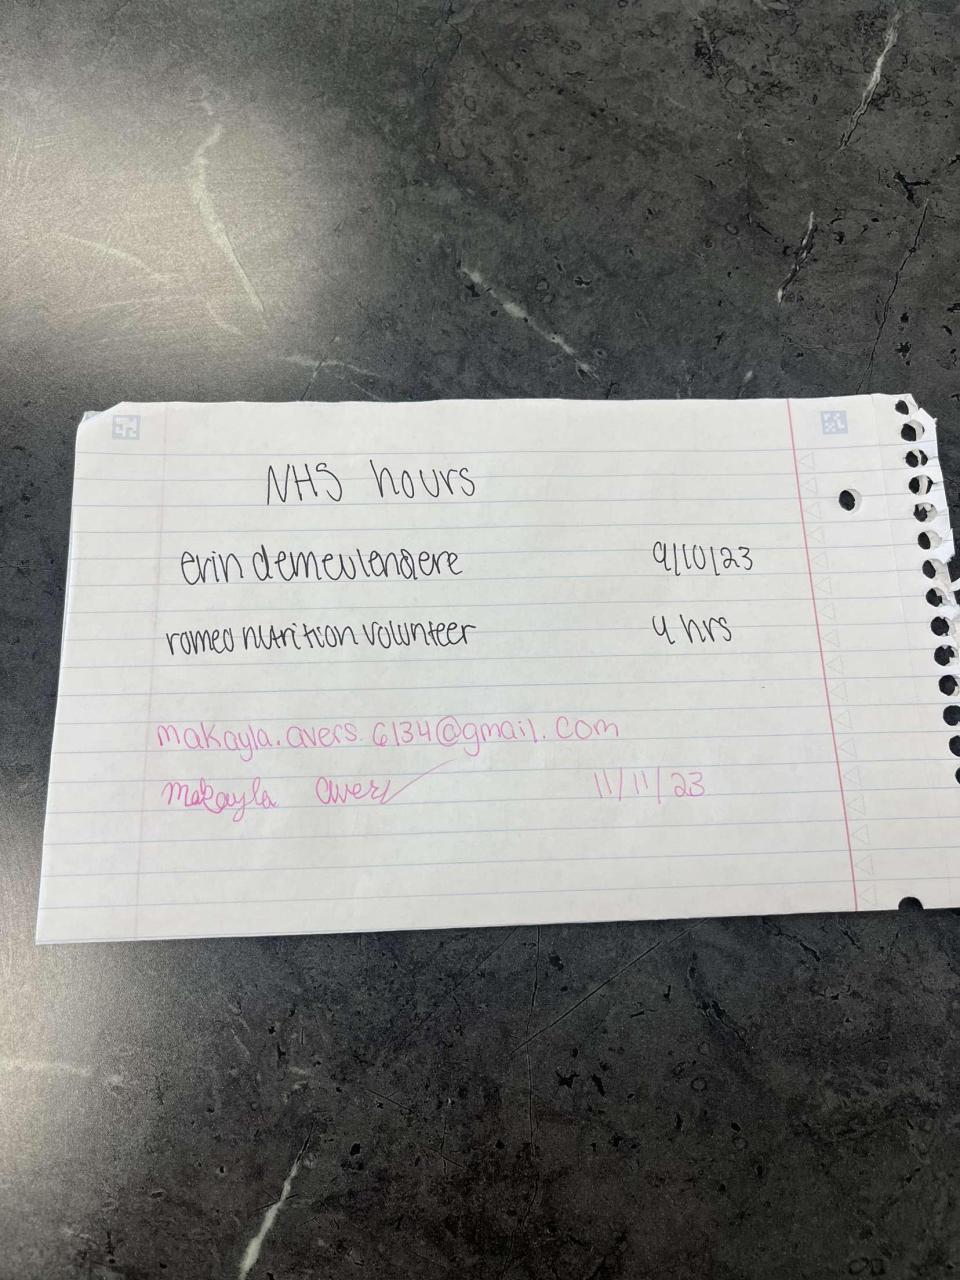 NHS hours
erin demeulenaere 9/10/23
romeo nutrition volunteer 4 hrs
makayla.avers.6134@gmail.com
Makayla Avers 11/11/23